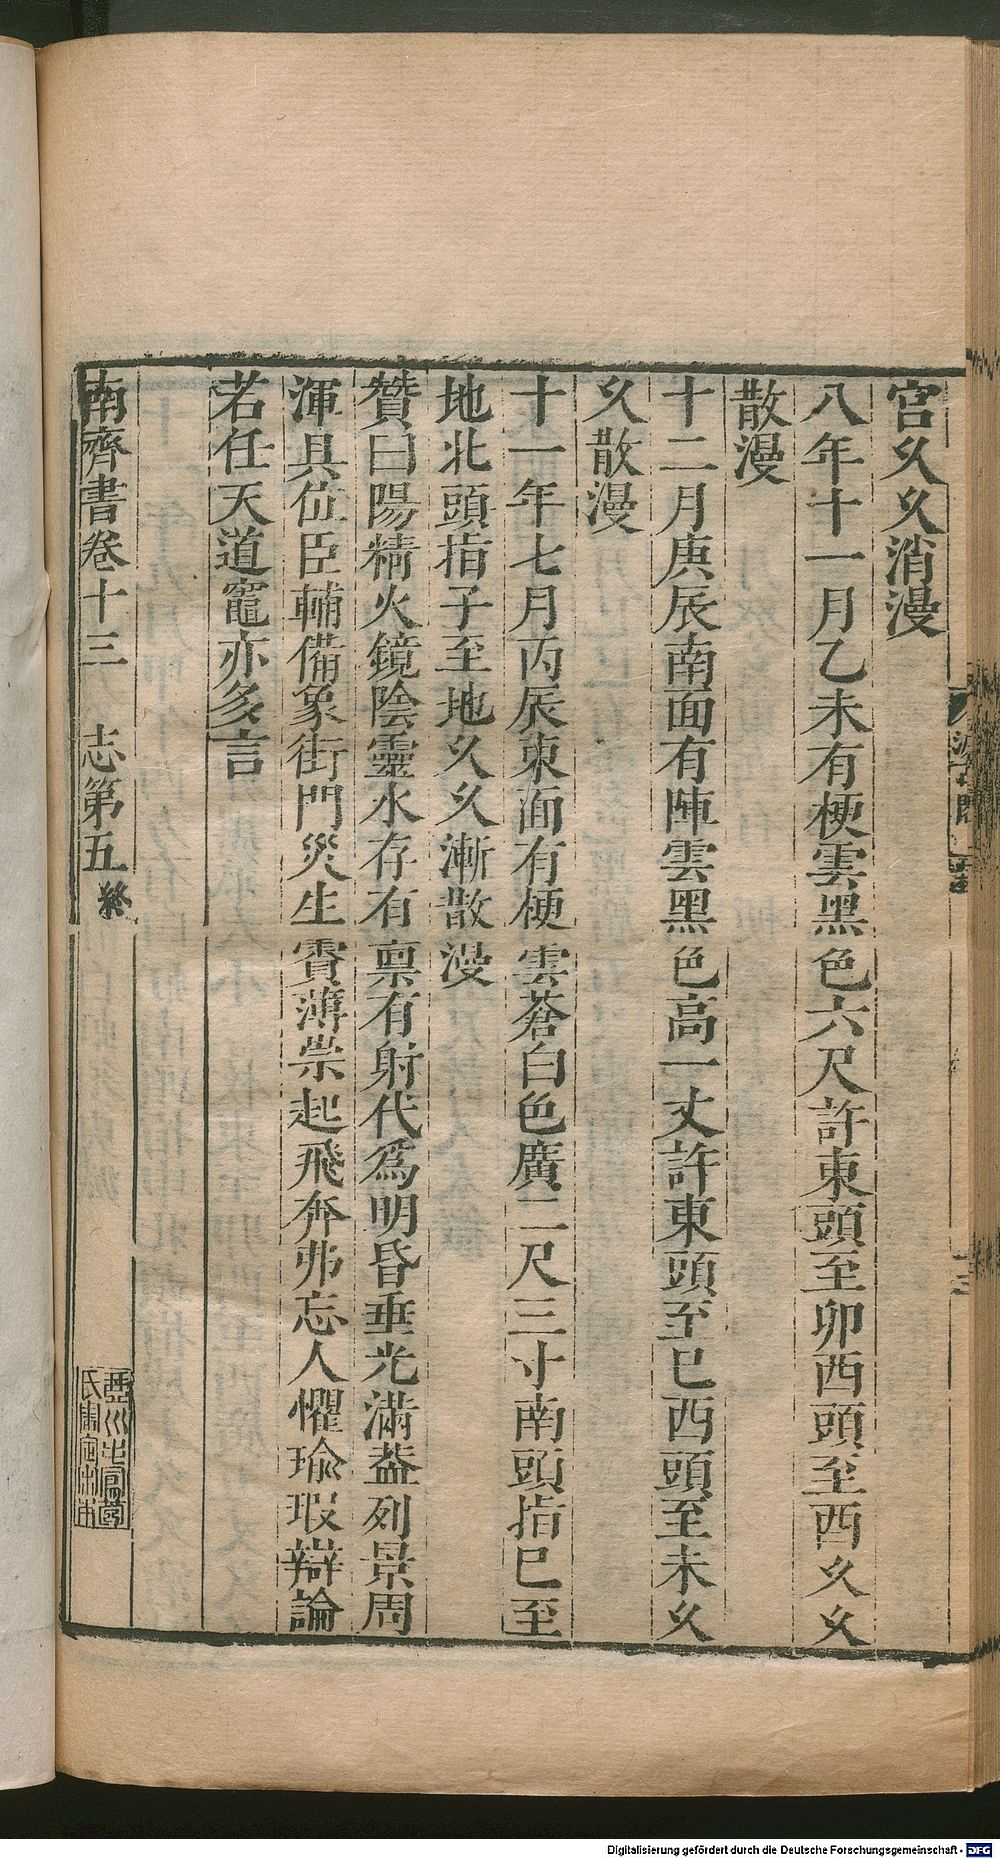 宮久久消漫
八年十一月乙未有梗雲黑色六尺許東頭至卯西頭至酉久久
散漫
十二月庚辰南面有陣雲黑色高一丈許東頭至巳西頭至未久
久散漫
十一年七月丙辰東面有梗雲蒼白色廣二尺三寸南頭指巳至
地北頭指子至地久久漸散漫
贊曰陽精火鏡陰靈水存有稟有射代爲明昏垂光滿葢列景周
渾具位臣輔備象街門災生實薄祟起飛奔弗忘人懼瑜瑕辯論
若任天道竈亦多言
南齊書卷十三 志第五終
Digitalisierung gefördert durch die Deutsche Forschungsgemeinschaft - DFG